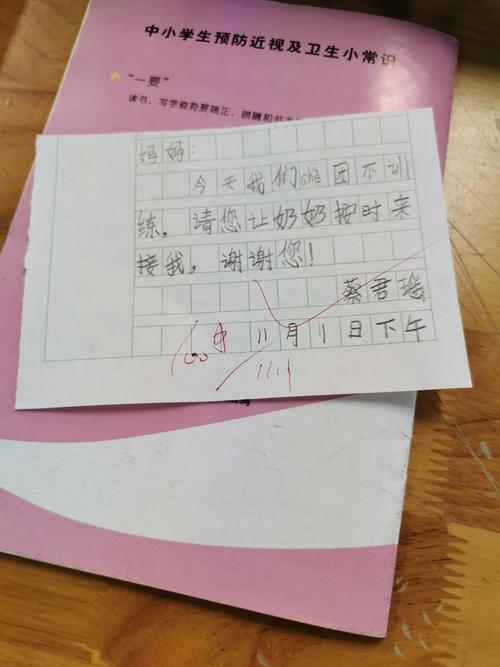 中小学生预防近视及卫生小常识
“一要”
读书、写字姿势要端正，眼睛和书本
妈妈：
今天我们shè团不训
练。请您让奶奶按时来
接我，谢谢您！
蔡君瑶
11月1日下午